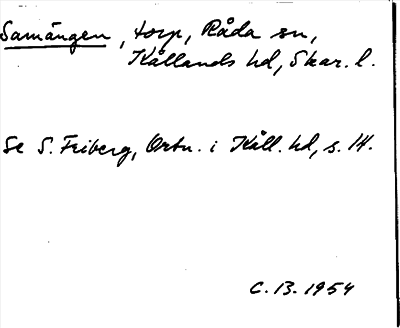 Samängen, torp, Råda sn,
Kållands hd, Skar. l.
Se S. Friberg, Ortn. i Kåll. hd, s. 14.
C. B. 1954